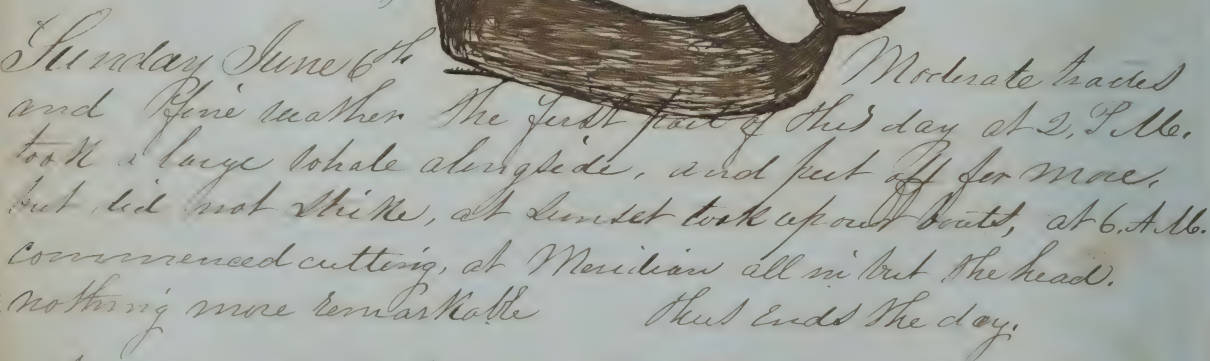 Sunday June 6th Moderate trades
and fine weather the first part of this day at 2, P.M.
took a large whale alongside, and put off for more,
but did not strike, at sunset took up our boats, at 6. A.M.
commenced cutting, at Meridian all in but the head.
nothing more remarkable thus ends the day.